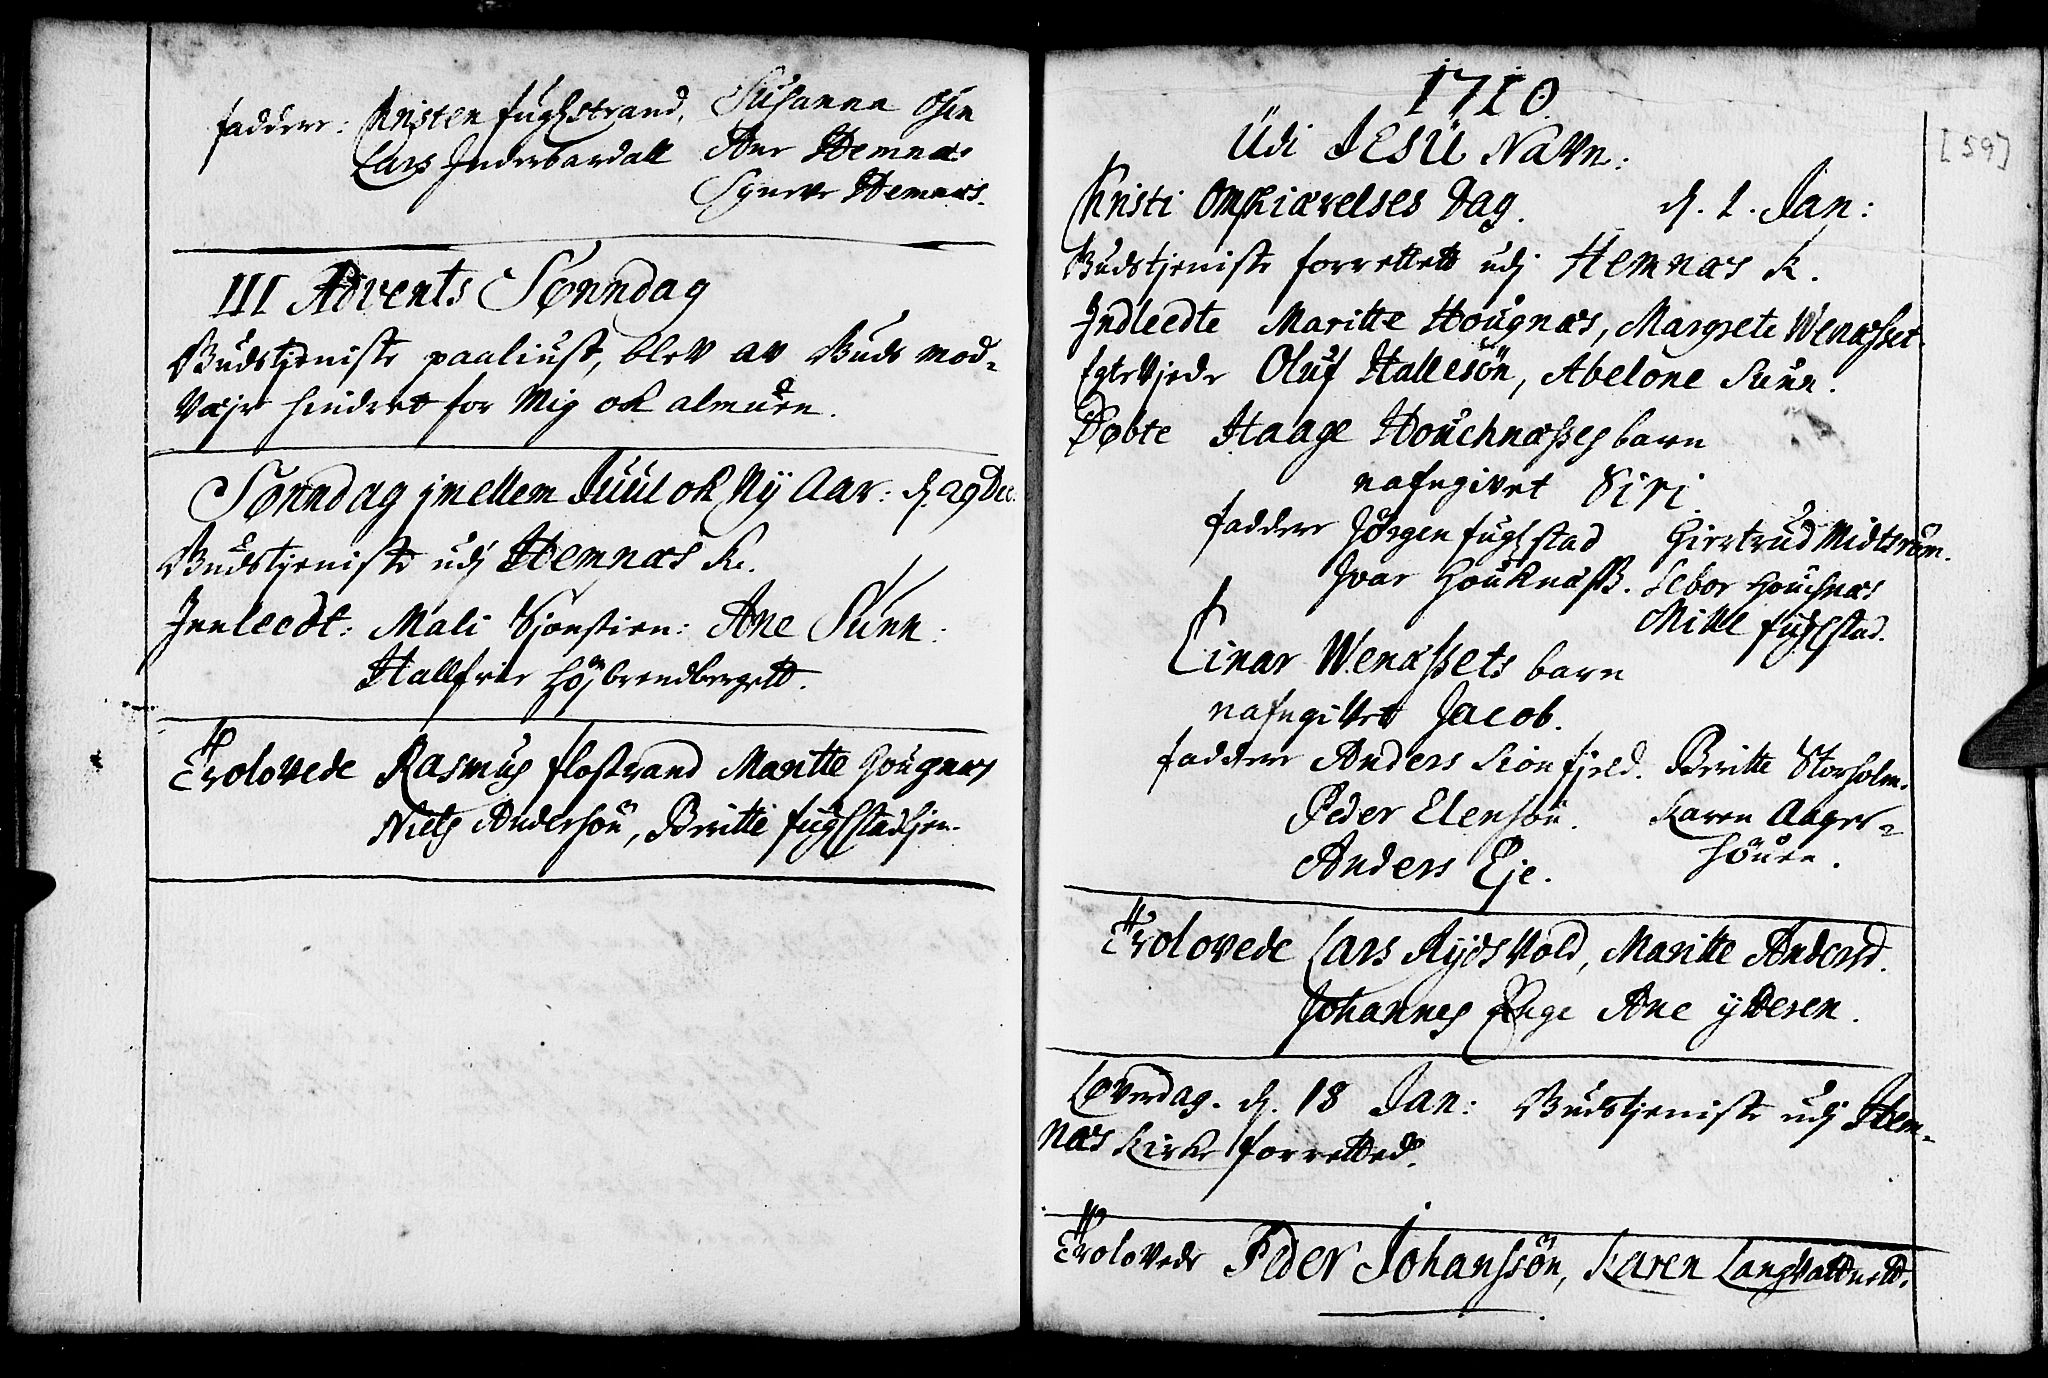 faddere: Kristen fuglstrand, Susanna Osen
Lars Inderbardall Ane Hemnæs
Syneve Hemnæs.
III Advents Sønndag
Gudstjeniste paaliust, blev av Guds mod-
væje hindret for Mig ok almuen.
Sønndag jmellem Juul ok Nÿ Aar: d. 29 Dec.
Gudstjeniste udj Hemnæs K.
Innleedt: Mali Sjonstien: Ane Sunn.
Hallfrie Højbrendbergett.
Trolovede Rasmus flostrand Maritte Hougnæs
Niels Andersøn, Beritte fuglstadhjen.
1710.
Udi JESU Navn:
Kristi Omskiærelses Dag. d. 1. Jan:
Gudstjeniste forrettett udj Hemnæs K.
Indleedte Maritte Hougnæs, Margrete Wenæsset.
Egteviede Oluf Hallesøn, Abelone Sunn.
Døbte Haage Houchnæsses barn
nafngivet Siri.
faddere Jørgen fuglstad Giertrud Midtsrøm.
Jvar Houknæss. Lebor Houchnæs
Mille fuglstad.
Einar Wenæssets barn
nafngivet Jacob.
faddere Anders Sionfjeld. Beritte Storholm.
Peder Elensøn. Karen Aager-
Anders Eje. høuen.
Trolovede Lars Rydsvold, Maritte Andersd.
Johannes Enge Ane ytteren.
Løverdag. d. 18 Jan: Gudstjeniste udj Hem-
næs Kirke forretted.
Trolovede Peder Johanssøn, Karen Langvattnett.
[59]